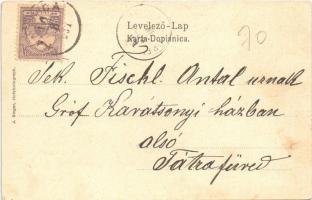 Levelező-Lap
Karta-Dopisnica.
70
Tek. Fischl Antal urnak
Gróf Karatsonyi házban
alsó
Tátrafüred